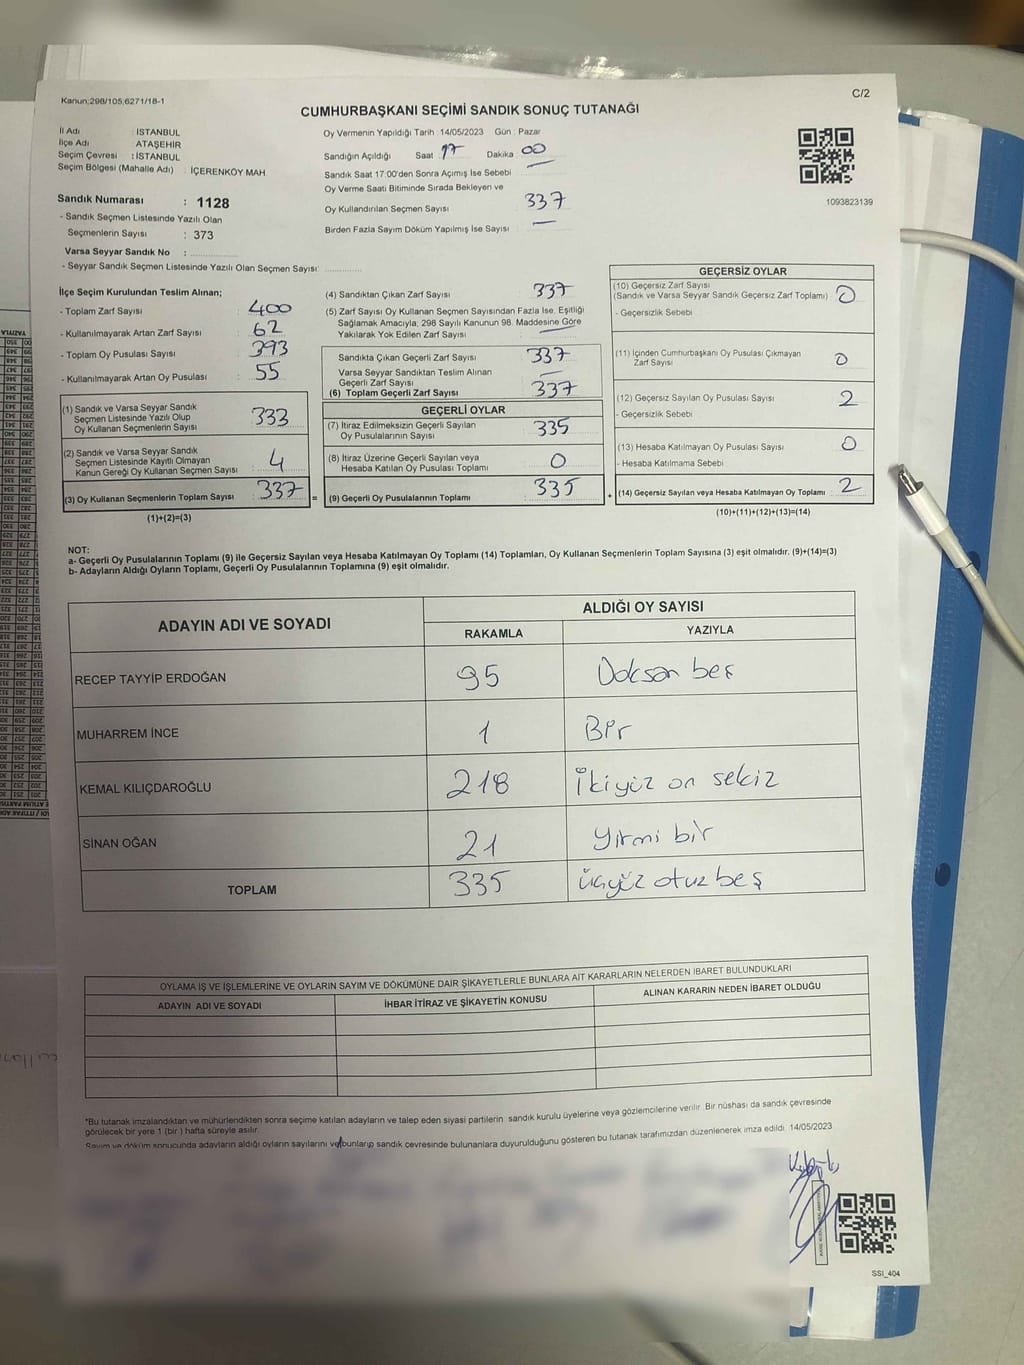 Kanun;298/105,6271/18-1
C/2
CUMHURBAŞKANI SEÇİMİ SANDIK SONUÇ TUTANAĞI
İl Adı : İSTANBUL
İlçe Adı : ATAŞEHİR
Seçim Çevresi : İSTANBUL
Seçim Bölgesi (Mahalle Adı) : İÇERENKÖY MAH.
Sandık Numarası : 1128
- Sandık Seçmen Listesinde Yazılı Olan
Seçmenlerin Sayısı : 373
Varsa Seyyar Sandık No :
- Seyyar Sandık Seçmen Listesinde Yazılı Olan Seçmen Sayısı:
Oy Vermenin Yapıldığı Tarih :14/05/2023 Gün : Pazar
Sandığın Açıldığı Saat 17 Dakika 00
Sandık Saat 17:00'den Sonra Açımış İse Sebebi —
Oy Verme Saati Bitiminde Sırada Bekleyen ve
Oy Kullandırılan Seçmen Sayısı 337
Birden Fazla Sayım Döküm Yapılmış İse Sayısı —
1093823139
İlçe Seçim Kurulundan Teslim Alınan;
- Toplam Zarf Sayısı : 400
- Kullanılmayarak Artan Zarf Sayısı : 62
- Toplam Oy Pusulası Sayısı : 393
- Kullanılmayarak Artan Oy Pusulası : 55
(1) Sandık ve Varsa Seyyar Sandık
Seçmen Listesinde Yazılı Olup
Oy Kullanan Seçmenlerin Sayısı : 333
(2) Sandık ve Varsa Seyyar Sandık
Seçmen Listesinde Kayıtlı Olmayan
Kanun Gereği Oy Kullanan Seçmen Sayısı : 4
(3) Oy Kullanan Seçmenlerin Toplam Sayısı : 337
(1)+(2)=(3)
(4) Sandıktan Çıkan Zarf Sayısı 337
(5) Zarf Sayısı Oy Kullanan Seçmen Sayısından Fazla İse, Eşitliği
Sağlamak Amacıyla, 298 Sayılı Kanunun 98. Maddesine Göre
Yakılarak Yok Edilen Zarf Sayısı : —
Sandıkta Çıkan Geçerli Zarf Sayısı : 337
Varsa Seyyar Sandıktan Teslim Alınan
Geçerli Zarf Sayısı : —
(6) Toplam Geçerli Zarf Sayısı : 337
GEÇERLİ OYLAR
(7) İtiraz Edilmeksizin Geçerli Sayılan
Oy Pusulalarının Sayısı : 335
(8) İtiraz Üzerine Geçerli Sayılan veya
Hesaba Katılan Oy Pusulası Toplamı : 0
= (9) Geçerli Oy Pusulalarının Toplamı : 335
GEÇERSİZ OYLAR
(10) Geçersiz Zarf Sayısı
(Sandık ve Varsa Seyyar Sandık Geçersiz Zarf Toplamı) : 0
- Geçersizlik Sebebi
(11) İçinden Cumhurbaşkanı Oy Pusulası Çıkmayan
Zarf Sayısı : 0
(12) Geçersiz Sayılan Oy Pusulası Sayısı : 2
- Geçersizlik Sebebi
(13) Hesaba Katılmayan Oy Pusulası Sayısı : 0
- Hesaba Katılmama Sebebi
+ (14) Geçersiz Sayılan veya Hesaba Katılmayan Oy Toplamı : 2
(10)+(11)+(12)+(13)=(14)
NOT:
a- Geçerli Oy Pusulalarının Toplamı (9) ile Geçersiz Sayılan veya Hesaba Katılmayan Oy Toplamı (14) Toplamları, Oy Kullanan Seçmenlerin Toplam Sayısına (3) eşit olmalıdır. (9)+(14)=(3)
b- Adayların Aldığı Oyların Toplamı, Geçerli Oy Pusulalarının Toplamına (9) eşit olmalıdır.
ADAYIN ADI VE SOYADI ALDIĞI OY SAYISI
RAKAMLA YAZIYLA
RECEP TAYYİP ERDOĞAN 95 Doksan beş
MUHARREM İNCE 1 Bir
KEMAL KILIÇDAROĞLU 218 İkiyüz on sekiz
SİNAN OĞAN 21 yirmi bir
TOPLAM 335 üçyüz otuz beş
OYLAMA İŞ VE İŞLEMLERİNE VE OYLARIN SAYIM VE DÖKÜMÜNE DAİR ŞİKAYETLERLE BUNLARA AİT KARARLARIN NELERDEN İBARET BULUNDUKLARI
ADAYIN ADI VE SOYADI İHBAR İTİRAZ VE ŞİKAYETİN KONUSU ALINAN KARARIN NEDEN İBARET OLDUĞU
*Bu tutanak imzalandıktan ve mühürlendikten sonra seçime katılan adayların ve talep eden siyasi partilerin sandık kurulu üyelerine veya gözlemcilerine verilir. Bir nüshası da sandık çevresinde
görülecek bir yere 1 (bir ) hafta süreyle asılır.
Sayım ve döküm sonucunda adayların aldığı oyların sayılarını ve bunların sandık çevresinde bulunanlara duyurulduğunu gösteren bu tutanak tarafımızdan düzenlenerek imza edildi. 14/05/2023
SSI_404